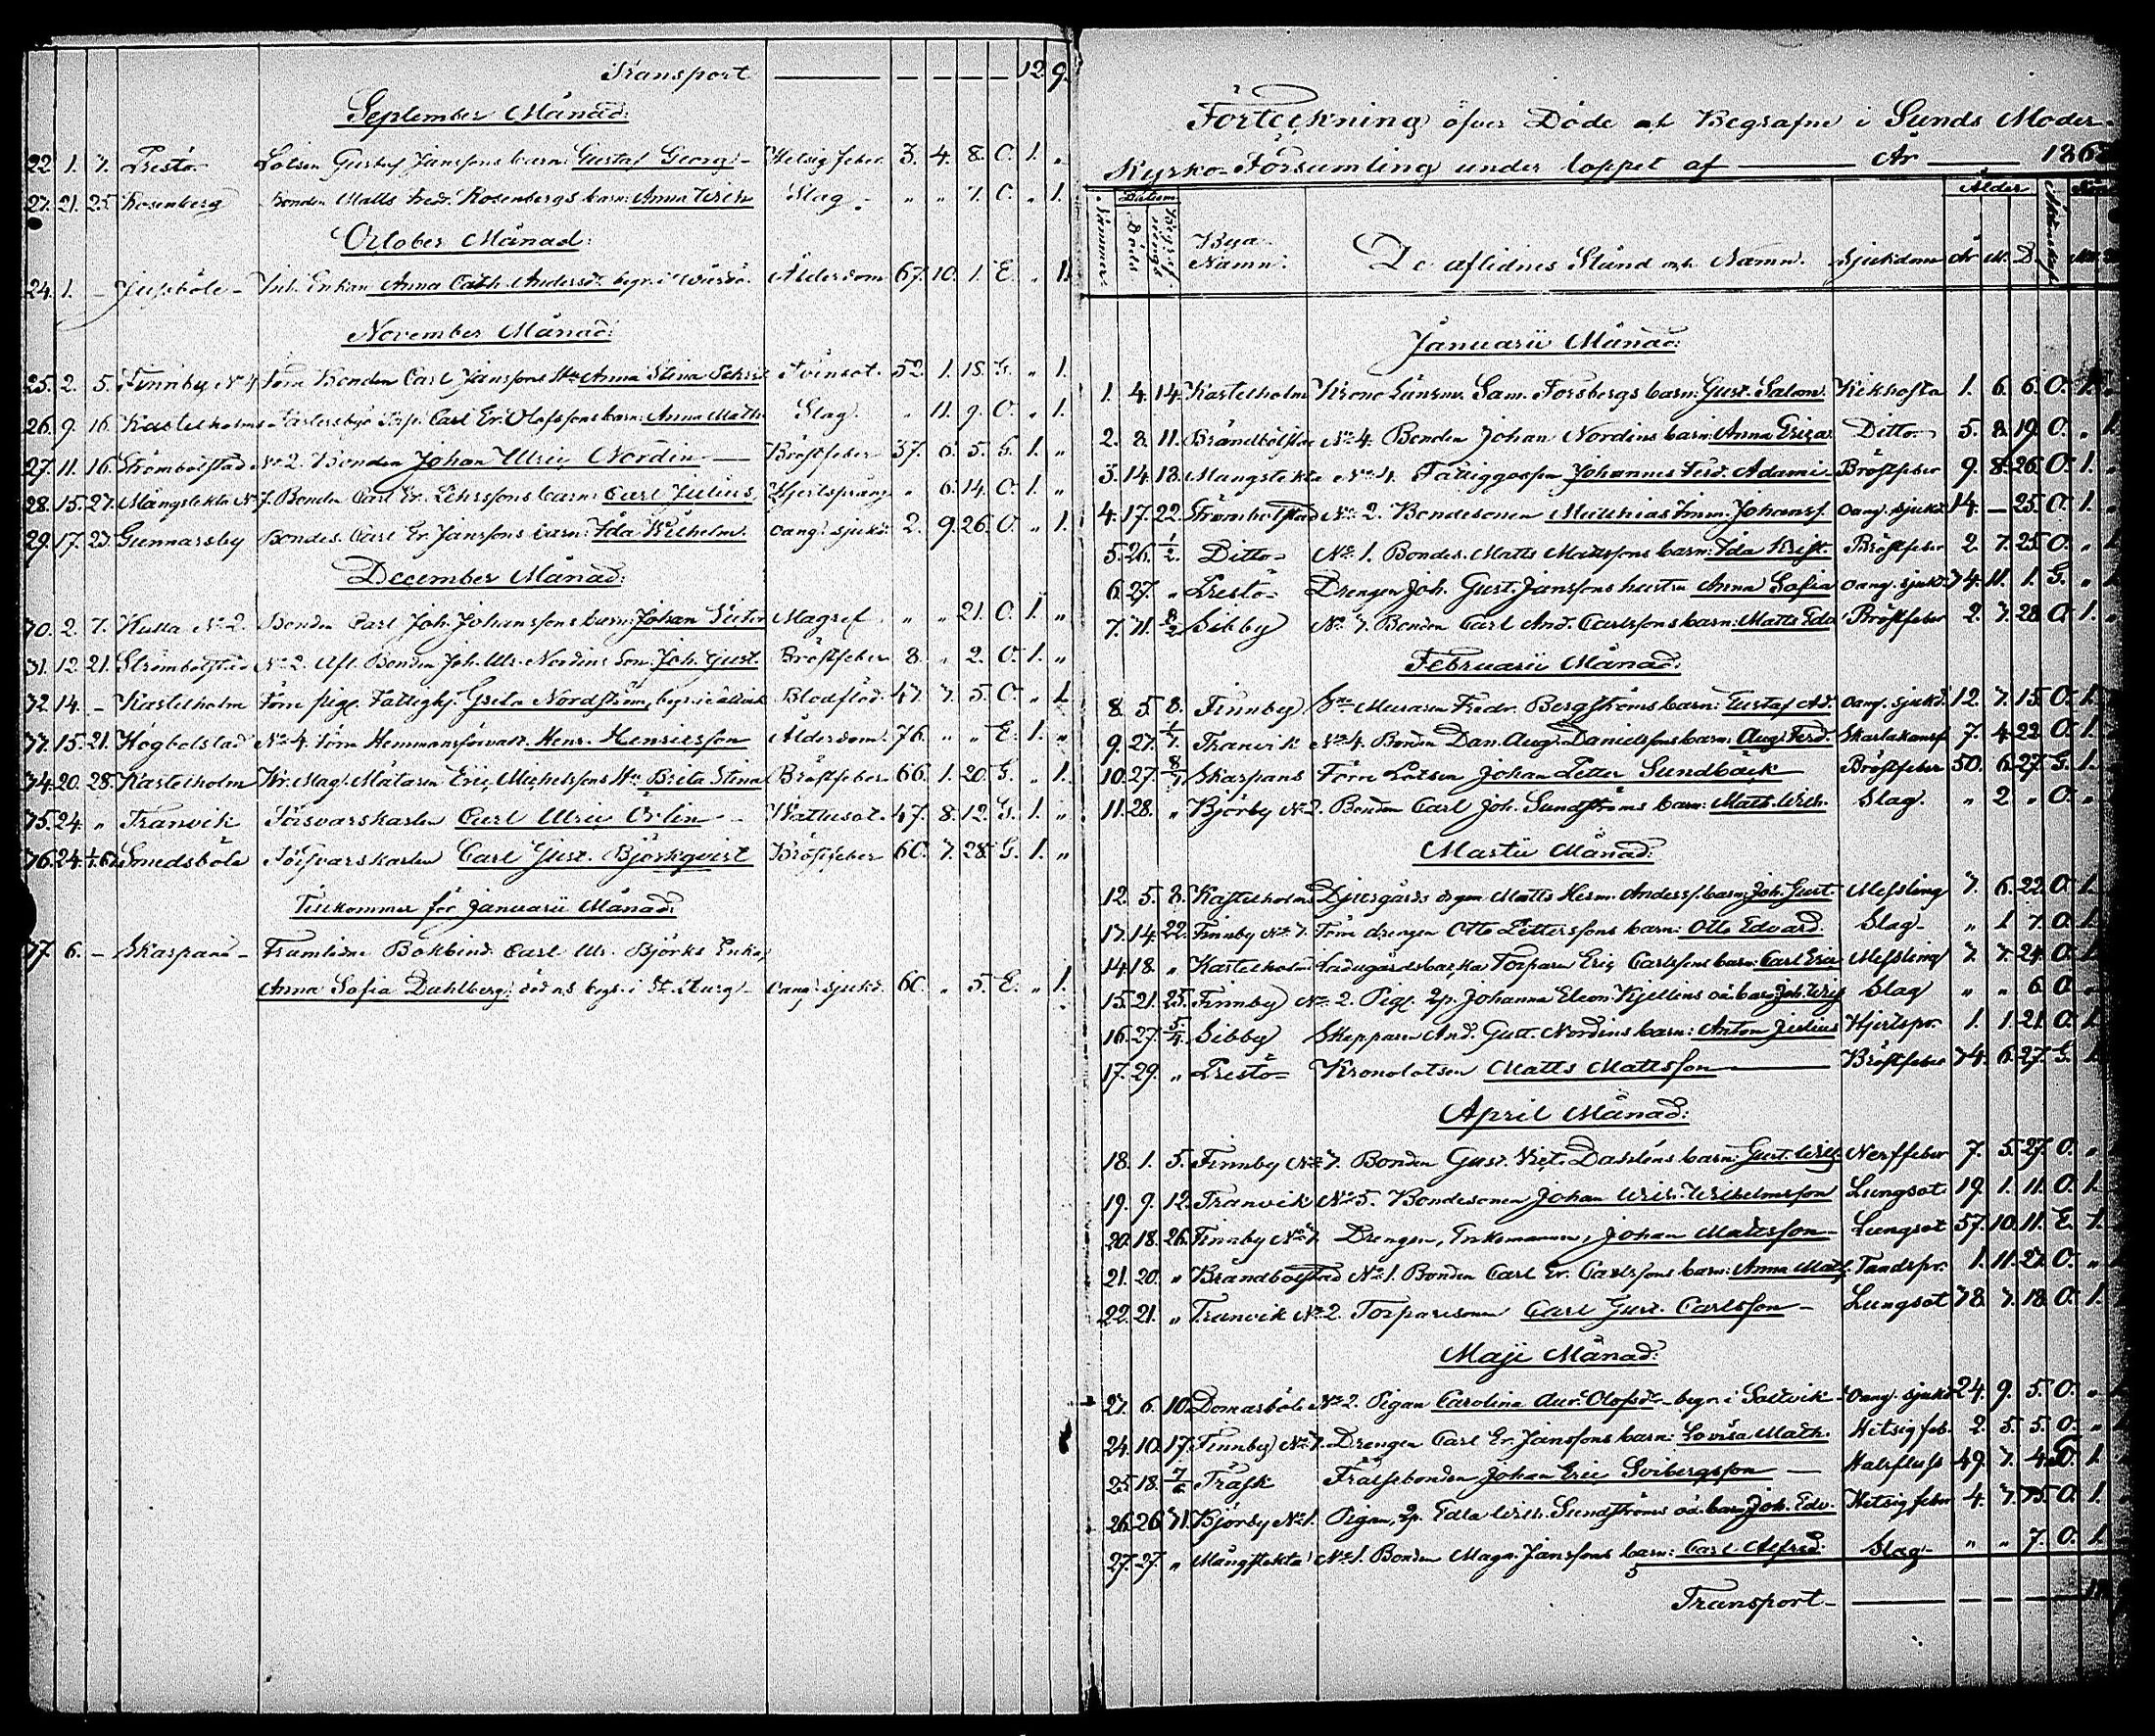 Transport — — — — — 12. 9.
September Månad:
22. 1. 7. Prestö Lotsen Gustaf Janssons barn: Gustaf Georg Hetsig feber 3. 4. 8. O. 1. "
27. 21. 25. Rosenberg Bonden Matts Fred. Rosenbergs barn: Anna Wilh. Slag " " 7. O. " 1.
October Månad:
24. 1. - Inh. Enkan Anna Cath. Andersdr begr. i Wårdö. Ålderdom 67. 10. 1. E. " 1.
November Månad:
25. 2. 5. Finnby No 4 Förra Bonden Carl Janssons Hu Anna Stina Tvinsot. 52. 1. 18. G. " 1.
26. 9. 16. Kastelholms Torp. Carl Er. Olofssons barn: Anna Math. Slag. " 11. 9. O. " 1.
27. 11. 16. Strömbolstad No 2. Bonden Johan Ulric Nordin — Bröstfeber 37. 6. 5. G. 1. "
28. 15. 27. Mångstekta No 7. Bonden Carl Er. Lehrssons barn: Carl Julius Hjertsprång " 6. 14. O. 1. "
29. 17. 23. Gunnarsby Bondes. Carl Er. Janssons barn: Ida Wilhelm. oang. sjukd. 2. 9. 26. O. " 1.
December Månad:
30. 2. 7. Kulla No 2. Bonden Carl Joh. Johanssons barn: Johan Victor Magref " " 21. O. 1. "
31. 12. 21. Strömbolstad No 2. Afl. Bonden Joh. Ulr. Nordins Son Joh. Gust. Bröstfeber 8. " 2. O. 1. "
32. 14. - Kastelholm Förra pig. Fattighj. Greta Nordström, begr. i Saltvik Blodflöd. 47. 7. 5. O. " 1.
33. 15. 21. Högbolstad No 4. Förra Hemmansförvalt. Henr. Henricsson Ålderdom. 76. " " E. 1. "
34. 20. 28. Kastelholm Kr. Mag. Mätaren Eric Michelssons Hu Brita Stina Bröstfeber 66. 1. 20. G. " 1.
35. 24. " Tranvik Försvarskarlen Carl Ulric Öhlin Wattusot. 47. 8. 12. G. 1. "
36. 24. 1/1 67 Smedsböle Försvarskarlen Carl Gust. Björkqvist Bröstfeber 60. 7. 28. G. 1. "
Tillkommer för Januarii Månad:
37. 6. - Skarpans - Framlidne Bokbind. Carl Ulr. Björks Enka,
Anna Sofia Dahlberg, död och begr. i St. Petersburg oang. sjukd. 60. " 5. E. " 1.
Förteckning öfver Döde och Begrafne i Sunds Moder-
Kyrko-Församling under loppet af — År — 186
Nummer Datum Döds Begrafnings Byа Namn. De aflidnes Stånd och Namn. Sjukdom Ålder År M. D.
Januarii Månad:
1. 4. 14. Kastelholm Krono Länsm. Sam. Forsbergs barn: Gust. Salom. Kikhosta 1. 6. 6. O. 1. "
2. 8. 11. Brändbolstad No 4. Bonden Johan Nordins barn: Anna Eriza Ditto 5. 8. 19. O. " 1.
3. 14. 18. Mångstekta No 4. Fattiggossen Johannes Ferd. Adami Bröstfeber 9. 8. 26. O. 1. "
4. 17. 22. Strömbolstad No 2. Bondesonen Matthias Imm. Johanss. oang. sjukd. 14. — 25. O. 1. "
5. 26. 1/2. Ditto No 1. Bondes. Matts Mattssons barn: Ida Krist. Bröstfeber 2. 7. 25. O. " 1.
6. 27. " Prestö Drengen Joh. Gust. Janssons hustru Anna Sofia oang. sjukd. 34. 11. 1. G. " 1.
7. 31. 8/2 Sibby No 7. Bonden Carl And. Carlssons barn: Matts Edv. Bröstfeber 2. 7. 28. O. 1. "
Februarii Månad:
8. 5. 8. Finnby Muraren Fredr. Bergströms barn: Gustaf Ad. oang. sjukd. 12. 7. 15. O. 1.
9. 27. 1/3 Tranvik No 4. Bonden Dan. Aug. Danielssons barn: Aug. Ferd. Skarlakansf. 7. 4. 22. O. 1.
10. 27. 8/3 Skarpans Förra Lotsen Johan Petter Sundback Bröstfeber 50. 6. 27. G. 1.
11. 28. " Björby No 2. Bonden Carl Joh. Sundströms barn: Math. Wilh. Slag. " 2 " O. "
Martii Månad:
12. 5. 8. Kastelholms Djursgårds drgen Matts Herm. Anderss. barn: Joh. Gust. Messling 7. 6. 22. O. 1.
13. 14. 22. Finnby No 7. Förra drengen Otto Petterssons barn: Otto Edvard. Slag " 1 7. O. 1.
14. 18. " Kastelholm Ladugårdsbacka Torparen Eric Carlssons barn: Carl Eric Messling 7. 7. 24. O. 1.
15. 21. 25. Finnby No 2. Pig. Johanna Eleon. Kjellins oä. barn Joh. Wilh. Slag " " 6 O. "
16. 27. 5/4 Sibby Skepparen And. Gust. Nordins barn: Anton Julius Hjertspr. 1. 1. 21. O. 1.
17. 29. " Prestö Kronolotsen Matts Mattsson — Bröstfeber 74. 6. 27. G. 1.
April Månad:
18. 1. 5. Finnby No 7. Bonden Gust. Vict. Dahléns barn: Gust. Wilh. Nerffeber 7. 5. 27. O. "
19. 9. 12. Tranvik No 5. Bondesonen Johan Wilh. Wilhelmsson Lungsot 19. 1. 11. O. 1.
20. 18. 26. Finnby No 7. Drengen, Enkemannen, Johan Mattsson Lungsot 57. 10. 11. E. 1.
21. 20. " Brändbolstad No 1. Bonden Carl Er. Carlssons barn: Anna Math. Tandspr. 1. 11. 27. O. "
22. 21. " Tranvik No 2. Torparesonen Carl Gust. Carlsson Lungsot 38. 7. 18. O. 1.
Maji Månad:
23. 6. 10. Domarböle No 2. Pigan Carolina Aur. Olofsdr begr. i Saltvik Oang. sjukd. 24. 9. 5. O. "
24. 10. 17. Finnby No 7. Drengen Carl Er. Janssons barn: Lovisa Math. Hetsig feb. 2. 5. 5. O. "
25. 18. 7/6 Träsk Frälsebonden Johan Eric Svibergsson — Halsfluss 49. 7. 4. 1.
26. 26. 31. Björby No 1. Pigan, Edla Wilh. Sundströms oä. barn Joh. Edv. Hetsig feber 4. 7. 15. O. 1.
27. 27. " Mångstekta No 1. Bonden Magn. Janssons barn: Carl Alfred. Slag " " 7. O. 1.
Transport — — — —